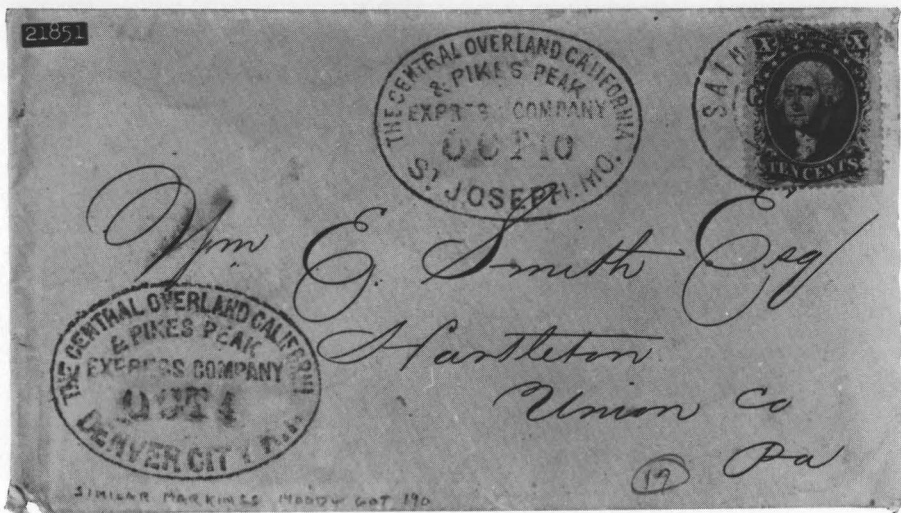 21851
THE CENTRAL OVERLAND CALIFORNIA
& PIKES PEAK
EXPRESS COMPANY
OCT 10
ST JOSEPH. MO.
SAIN
X X
TEN CENTS
Wm E. Smith Esq
Hartleton
Union Co
Pa
THE CENTRAL OVERLAND CALIFORNI
& PIKES PEAK
EXPRESS COMPANY
OCT 4
DENVER CITY
SIMILAR MARKINGS MOODY LOT 190